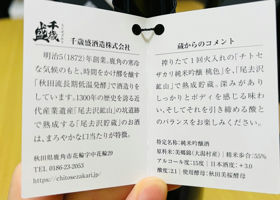 千歳盛
千歳盛酒造株式会社
明治5(1872)年創業。鹿角の寒冷
な気候のもと、時間をかけ醸す
「秋田流長期低温発酵」で酒造りを
しています。1300年の歴史を誇る近
代産業遺産「尾去沢鉱山」の坑道跡
で熟成する「尾去沢貯蔵」のお酒
は、まろやかな口当たりが特徴。
秋田県鹿角市花輪字中花輪29
TEL 0186-23-2053
https://chitosezakari.jp/
蔵からのコメント
搾りたて1回火入れの『チトセ
ザカリ純米吟醸 桃色』を、「尾去沢
鉱山」で熟成貯蔵。深みがあり
しっかりとボディを感じる味わ
い、そしてそれを引き締める酸と
のバランスをお楽しみください。
特定名称:純米吟醸酒
原料米:美郷錦(大潟村産)|精米歩合:55%
アルコール度:15度|日本酒度:+3.0
酸度:2.1|使用酵母:秋田美桜酵母